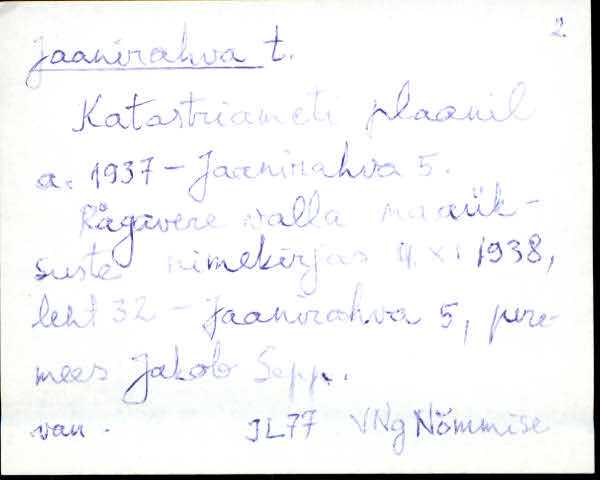 2
Jaanirahva t.
Katastriameti plaanil
a. 1937 - Jaanirahva 5.
Rägavere valla maaük-
suste nimekirjas XI 1938,
leht 32 - Jaanirahva 5, pere-
mees Jakob Sepp.
van. JL77 VNg Nõmmise